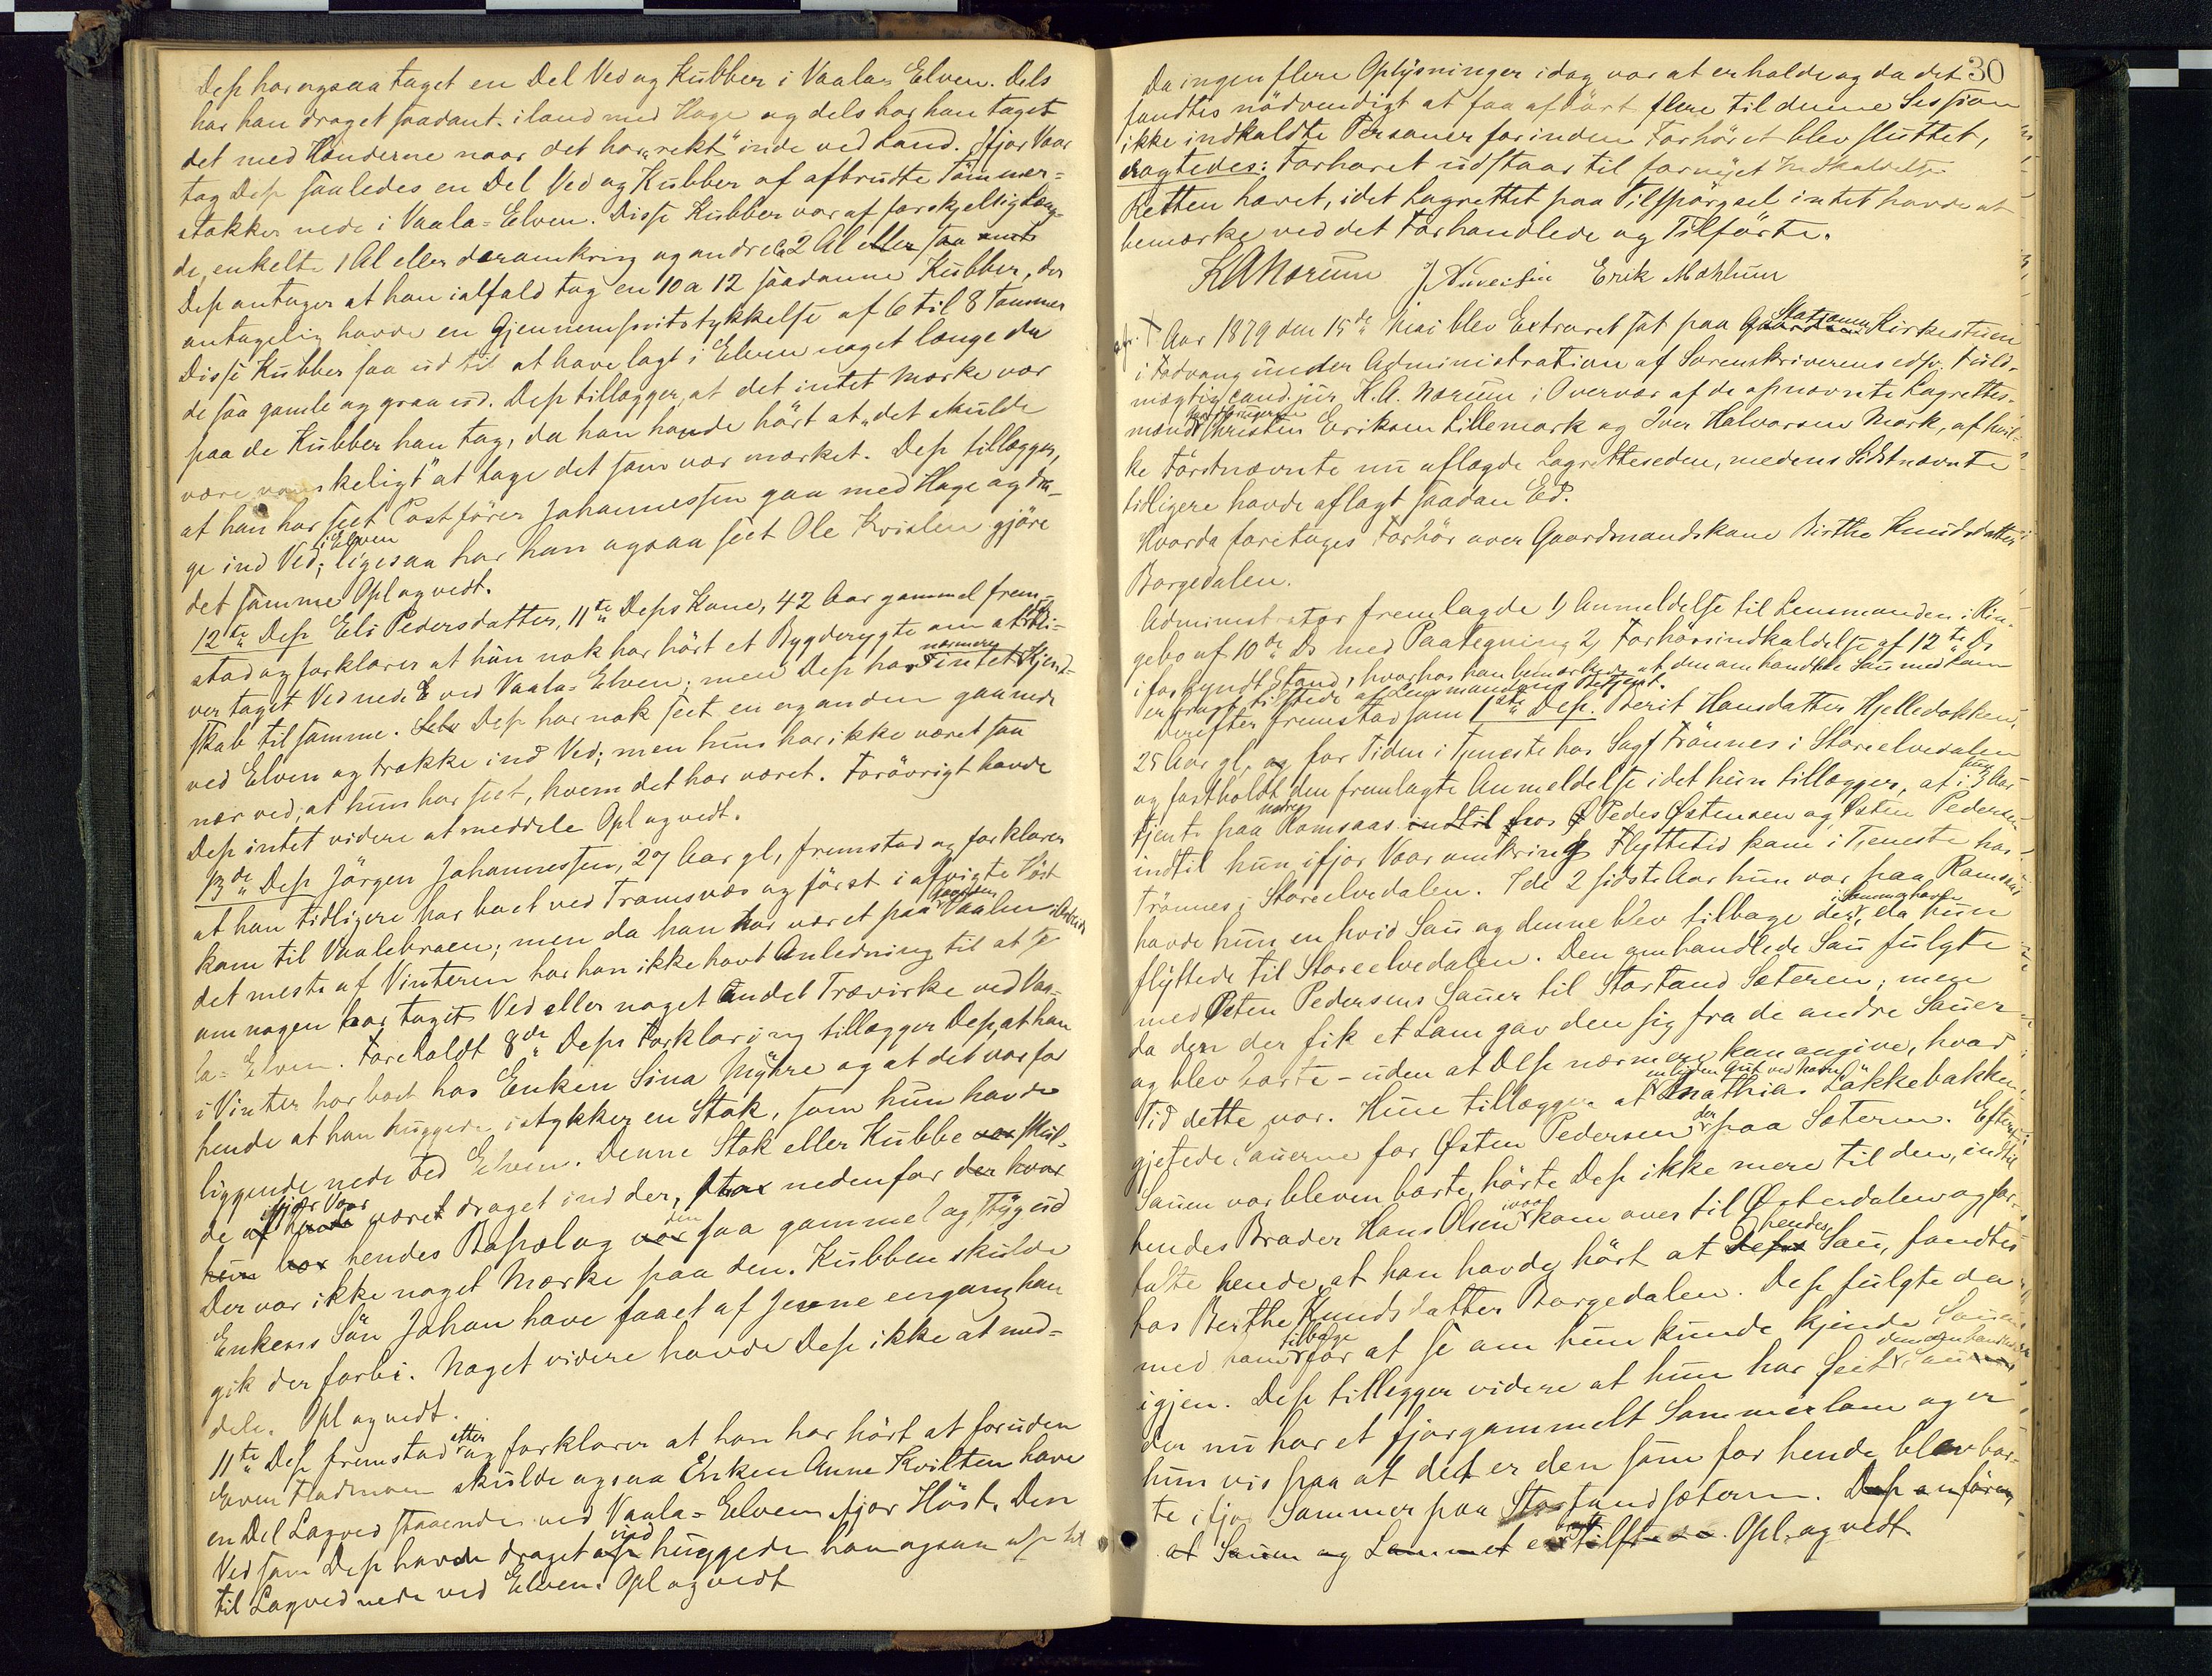 Dep har ogsaa taget en Del Ved og Kubber i Vaala-Elven. Dels
har han draget saadant iland med Hage og dels har han taget
det med Hænderne naar det har "rekt" inde ved Land. Ifjor Vaar
tog Dep saaledes en Del Ved og Kubber af afbrudte Tømmer-
stokke nede i Vaala-Elven. Disse Kubber var af forskjellig Læng-
de, enkelte 1 Al eller deromkring og andre ca 2 Al eller saa omt
Dep antager at han ialfald tog en 10 a 12 saadanne Kubber, der
antagelig havde en Gjennemsnitstykkelse af 6 til 8 Tommer
Disse Kubber saa ud til at have lagt i Elven noget længe da
de saa gamle og graa ud. Dep tillægger, at det intet Mærke var
paa de Kubber han tog, da han havde hört at "det skulde
være vanskeligt" at tage det som var mærket. Dep tillægger,
at han har seet Postförer Johannessen gaa med Hage og dra-
ge ind Ved i Elven; ligesaa har han ogsaa seet Ole Kvislen gjöre
det samme Opl og vedt.
12te Dep Eli Pedersdatter, 11te Deps Kone, 42 Aar gammel frem-
stod og forklarer at hun nok har hört et Bygderygte om at Fol-
ver taget Ved nede E ved Vaala-Elven; men Dep har nærmere intet Kjend-
skab til samme. Selv Dep har nok seet en og anden gaa nede
ved Elven og trække ind Ved; men hun har ikke været saa
nær ved, at hun har seet, hvem det har været. Forövrigt havde
Dep intet videre at meddele Opl og vedt.
13de Dep Jörgen Johannessen, 27 Aar gl, fremstod og forklarer
at han tidligere har boet ved Tromsnæs og först i afvigte Höst
kom til Vaalebroen; men da han har været paa Vaalen i Arbeide
det meste af Vinteren har han ikke havt Anledning til at se
om nogen har taget Ved eller noget Andet Trævirke ved Vaa-
la-Elven. Foreholdt 8de Deps Forklaring tillægger Dep, at han
i Vinter har boet hos Enken Sina Myhre og at det var for
hende at han huggede istykker en Stok, som hun havde
liggende nede ved Elven. Denne Stok eller Kubbe var skul-
de af hende ifjor Vaar været draget ind der, strax nedenfor der hvor
hun har hendes Bopæl og var den saa gammel og styg ud
Der var ikke noget Mærke paa den. Kubben skulde
Enkens Sön Johan have faaet af Jenne engang han
gik der forbi. Noget videre havde Dep ikke at med-
dele. Opl og vedt.
11te Dep fremstod atter og forklarer at han har hört at foruden
Even Fladmoen skulde ogsaa Enken Anne Kvilten have
en Del Lagved staaende ved Vaala-Elven ifjor Höst. Den
Ved som Dep havde draget op ind huggede han ogsaa op
til Lagved nede ved Elven. Opl og vedt
30
Da ingen flere Oplysninger idag var at erholde og da det
fandtes nödvendigt at faa afhört flere til denne Session
ikke indkaldte Personer forinden Forhöret blev sluttet,
eragtedes: Forhöret udstaar til fornyet Indkaldelse
Retten hævet, idet Lagrettet paa Tilspörgsel intet havde at
bemærke ved det Forhandlede og Tilförte.
K A Nærum Erik Mæhlum
Aar 1879 den 15de Mai blev Extraret sat paa Gaarden Stationen Kirkestuen
i Fodvang under Administration af Sorenskriverens edsv. Fuld-
mægtig cand. jur. K. A. Nærum i Overvær af de opnævnte Lagrettes-
mænd Christen Eriksen Lillemork og Iver Halvorsen Mork, af hvil-
ke Förstnævnte nu aflagde Lagretteseden, medens Sidstnævnte
tidligere havde aflagt saadan Ed.
Hvorda foretoges Forhör over Gaardmandskone Birthe Knudsdatter
Borgedalen.
Administrator fremlagde 1) Anmeldelse til Lensmanden i Rin-
gebo af 10de Ds med Paategning 2) Forhörsindkaldelse af 12te Ds
i forkyndt Stand, hvorhos han bemærkede at den omhandlede Sau med Lam
er bragt tilstede af Lensmandens Betjent.
Derefter fremstod som 1ste Dep. Berit Hansdatter Hjelledokken,
25 Aar gl, og for Tiden i Tjeneste hos Sagf Trönnes i Storelvedalen
og fastholdt den fremlagte Anmeldelse idet hun tillægger, at hun i 3 Aar
tjente paa nedre Romsaas indtil hos Ø Peder Østensen og Østen Pedersen
indtil hun ifjor Vaar omkring Flyttetid kom i Tjeneste hos
Trönnes i Storelvedalen. I de 2 sidste Aar hun var paa Romsaas
havde hun en hvid Sau og denne blev tilbage der, da hun
flyttede til Storelvedalen. Den omhandlede Sau fulgte
med Østen Pedersens Sauer til Startand Sæteren; men
da den der fik et Lam gav den sig fra de andre Sauer
og blev borte - uden at Dep nærmere kan angive, hvad
Tid dette var. Hun tillægger at en liden Gut ved Navn Mathias Løkkebakken
gjetede Sauerne for Østen Pedersen der paa Sæteren. Efterat
Sauen var bleven borte, hörte Dep ikke mere til den, indtil
hendes Broder Hans Olsen kom over til Østerdalen og for-
talte hende, at han havde hört at Deps hendes Sau, fandtes
hos Berthe Knudsdatter Borgedalen. Dep fulgte da
med ham tilbage for at se om hun kunde kjende Sauen
igjen. Dep tillægger videre at hun har seet den omhandlede Sauen
der nu har et fjorgammelt Sommerlam og er
hun vis paa at det er den som for hende blev bor-
te ifjor Sommer paa Startandsæteren. Dep anförer
at Sauen og Lammet er tilstede. Opl. og vedt.